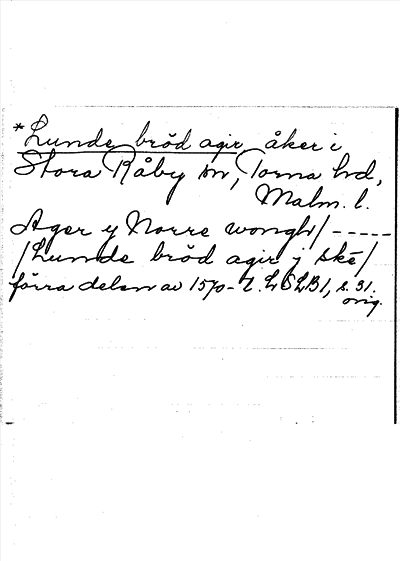 *Lunde bröd agir, åker i
Stora Råby sn, Torna hd,
Malm. l.
Ager y Norre wongh/-----
/Lunde bröd agir j skē/
förra delen av 1570-t. LÖLB1, s. 31.
orig.